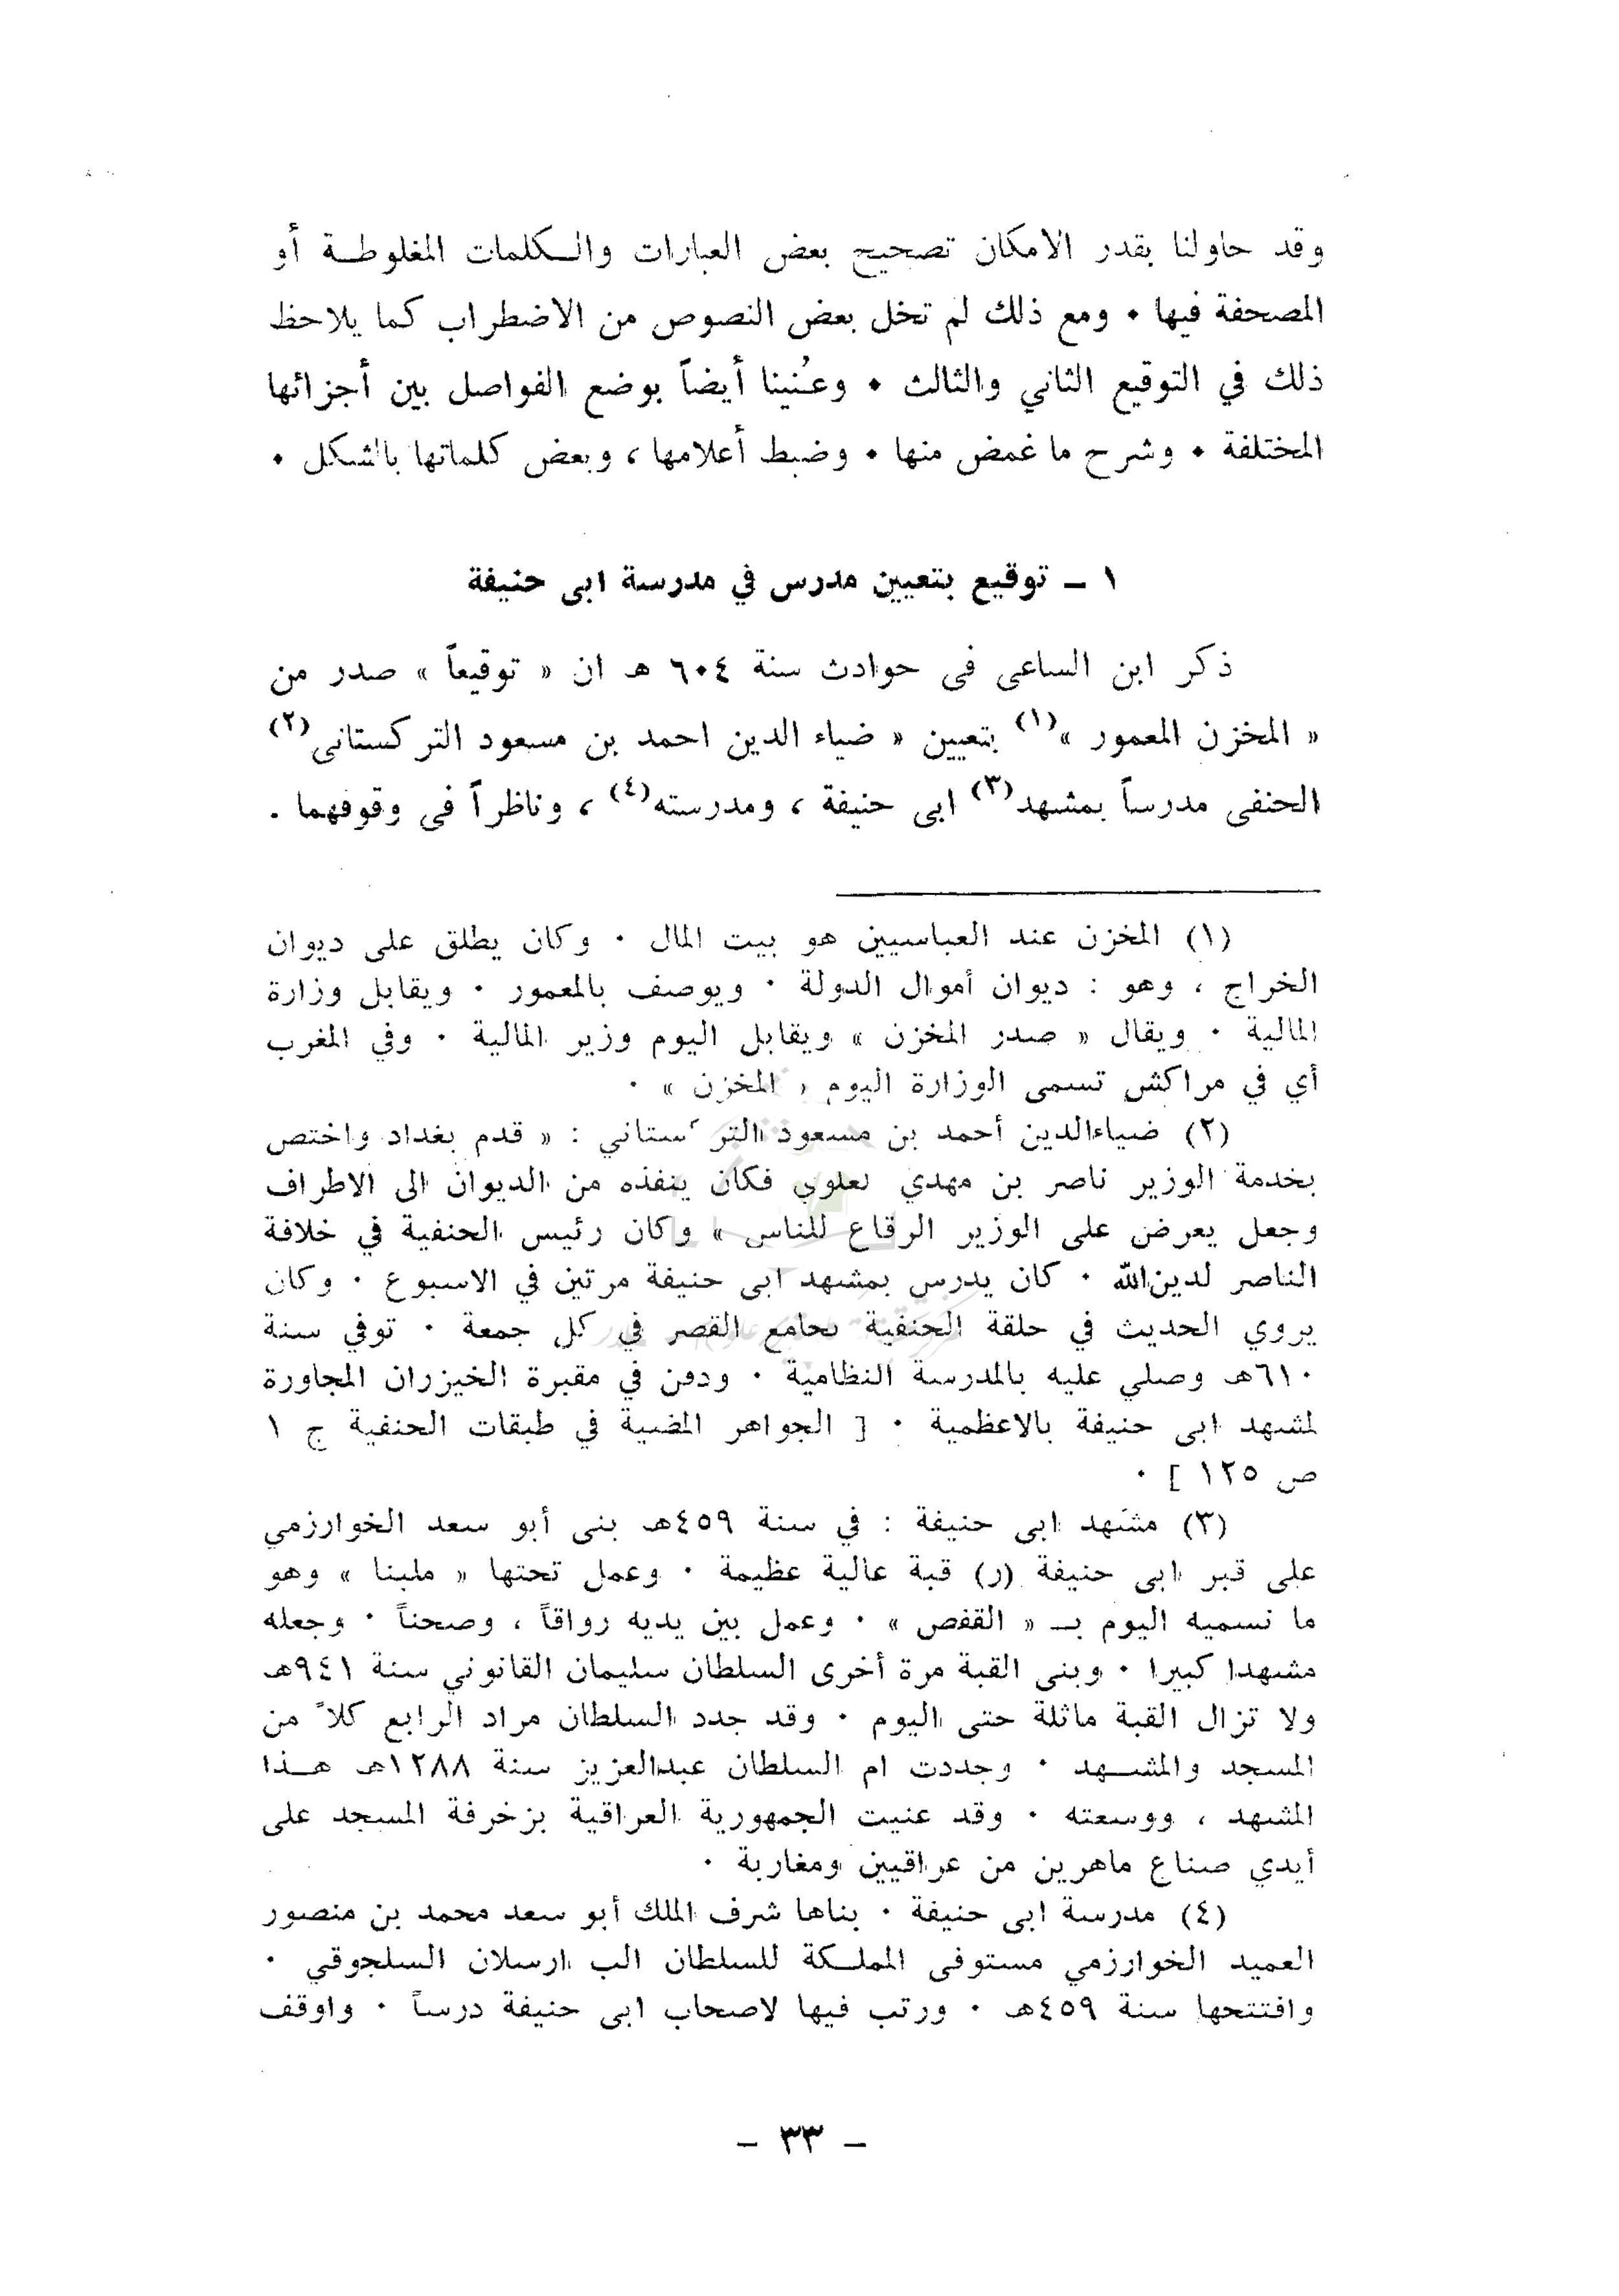 وقد حاولنا بقدر الامكان تصحيح بعض العبارات والـكلمات المغلوطـة أو
المصحفة فيها ٠ ومع ذلك لم تخل بعض النصوص من الاضطراب كما يلاحظ
ذلك في التوقيع الثاني والثالث ٠ وعُنينا أيضاً بوضع الفواصل بين أجزائها
المختلفة ٠ وشرح ما غمض منها ٠ وضبط أعلامها ، وبعض كلماتها بالشكل ٠
١ ـ توقيع بتعيين مدرس في مدرسة ابى حنيفة
ذكر ابن الساعى فى حوادث سنة ٦٠٤ هـ ان « توقيعاً » صدر من
« المخزن المعمور »(١) بتعيين « ضياء الدين احمد بن مسعود التركستانى(٢)
الحنفى مدرساً بمشهد(٣) ابى حنيفة ، ومدرسته(٤) ، وناظراً فى وقوفهما .
(١) المخزن عند العباسيين هو بيت المال ٠ وكان يطلق على ديوان
الخراج ، وهو : ديوان أموال الدولة ٠ ويوصف بالمعمور ٠ ويقابل وزارة
المالية ٠ ويقال « صدر المخزن » ويقابل اليوم وزير المالية ٠ وفي المغرب
أي في مراكش تسمى الوزارة اليوم « المخزن » ٠
(٢) ضياءالدين أحمد بن مسعود التركستاني : « قدم بغداد واختص
بخدمة الوزير ناصر بن مهدي لعلوي فكان ينفذه من الديوان الى الاطراف
وجعل يعرض على الوزير الرقاع للناس » وكان رئيس الحنفية في خلافة
الناصر لدين‌الله ٠ كان يدرس بمشهد ابى حنيفة مرتين في الاسبوع ٠ وكان
يروي الحديث في حلقة الحنفية بجامع القصر في كل جمعة ٠ توفي سنة
٦١٠هـ وصلي عليه بالمدرسة النظامية ٠ ودفن في مقبرة الخيزران المجاورة
لمشهد ابى حنيفة بالاعظمية ٠ [ الجواهر المضية في طبقات الحنفية ج ١
ص ١٢٥ ] ٠
(٣) مشهد ابى حنيفة : في سنة ٤٥٩هـ بنى أبو سعد الخوارزمي
على قبر ابى حنيفة (ر) قبة عالية عظيمة ٠ وعمل تحتها « ملبنا » وهو
ما نسميه اليوم بـ « القفص » ٠ وعمل بين يديه رواقاً ، وصحناً ٠ وجعله
مشهدا كبيرا ٠ وبنى القبة مرة أخرى السلطان سليمان القانوني سنة ٩٤١هـ
ولا تزال القبة ماثلة حتى اليوم ٠ وقد جدد السلطان مراد الرابع كلاً من
المسجد والمشـهد ٠ وجددت ام السلطان عبدالعزيز سنة ١٢٨٨هـ هـذا
المشهد ، ووسعته ٠ وقد عنيت الجمهورية العراقية بزخرفة المسجد على
أيدي صناع ماهرين من عراقيين ومغاربة ٠
(٤) مدرسة ابى حنيفة ٠ بناها شرف الملك أبو سعد محمد بن منصور
العميد الخوارزمي مستوفى المملـكة للسلطان الب ارسلان السلجوقي ٠
وافتتحها سنة ٤٥٩هـ ٠ ورتب فيها لاصحاب ابى حنيفة درساً ٠ واوقف
ـ ٣٣ ـ